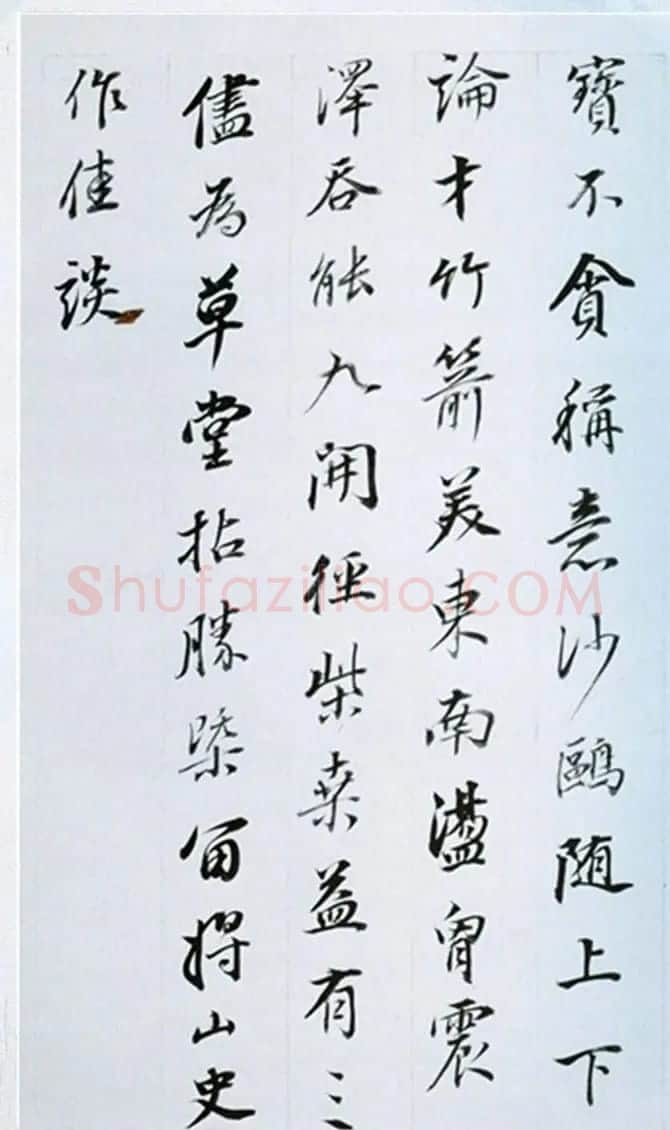 寶不貪稱意沙鷗随上下
論才竹箭美東南盪胷震
澤吞能九開徑柴桑益有三
儘為草堂拈勝槩留得山史
作佳談
Shufaziliao.COM